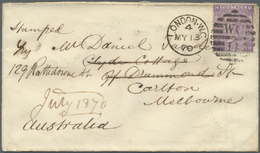 Stamped
Mr Daniel
LONDON-W.C
4
MY 13
70
WC
Clyde Cottage
129 Rathdowne St off Drummond St
Carlton
Melbourne
July 1870
Australia